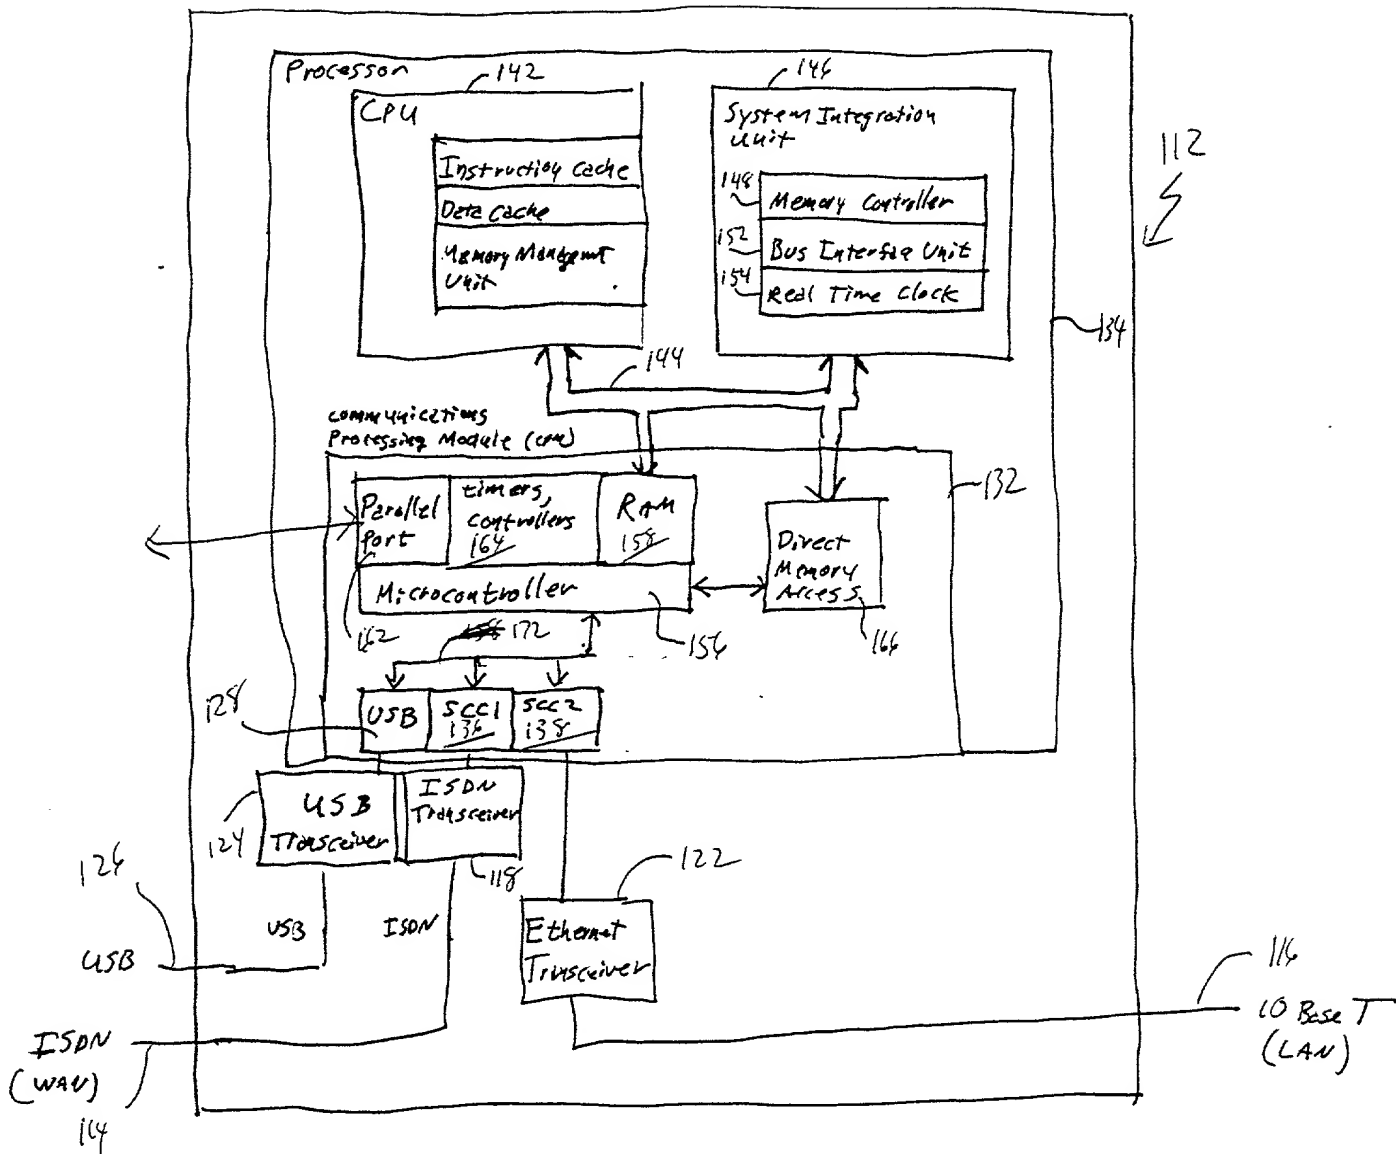 Processor
142
CPU
Instruction Cache
Data Cache
Memory Managemnt
Unit
146
System Integration
Unit
148
Memory Controller
152
Bus Interface Unit
154
Real Time Clock
112
134
144
Communications
Processing Module (CPM)
132
Parallel
Port
162
timers,
controllers
164
RAM
158
Microcontroller
156
Direct
Memory
Access
166
172
128
USB
SCC1
136
SCC2
138
124
USB
Transceiver
ISDN
Transceiver
118
122
Ethernet
Transceiver
126
USB
USB
ISDN
ISDN
(WAN)
114
116
10 Base T
(LAN)